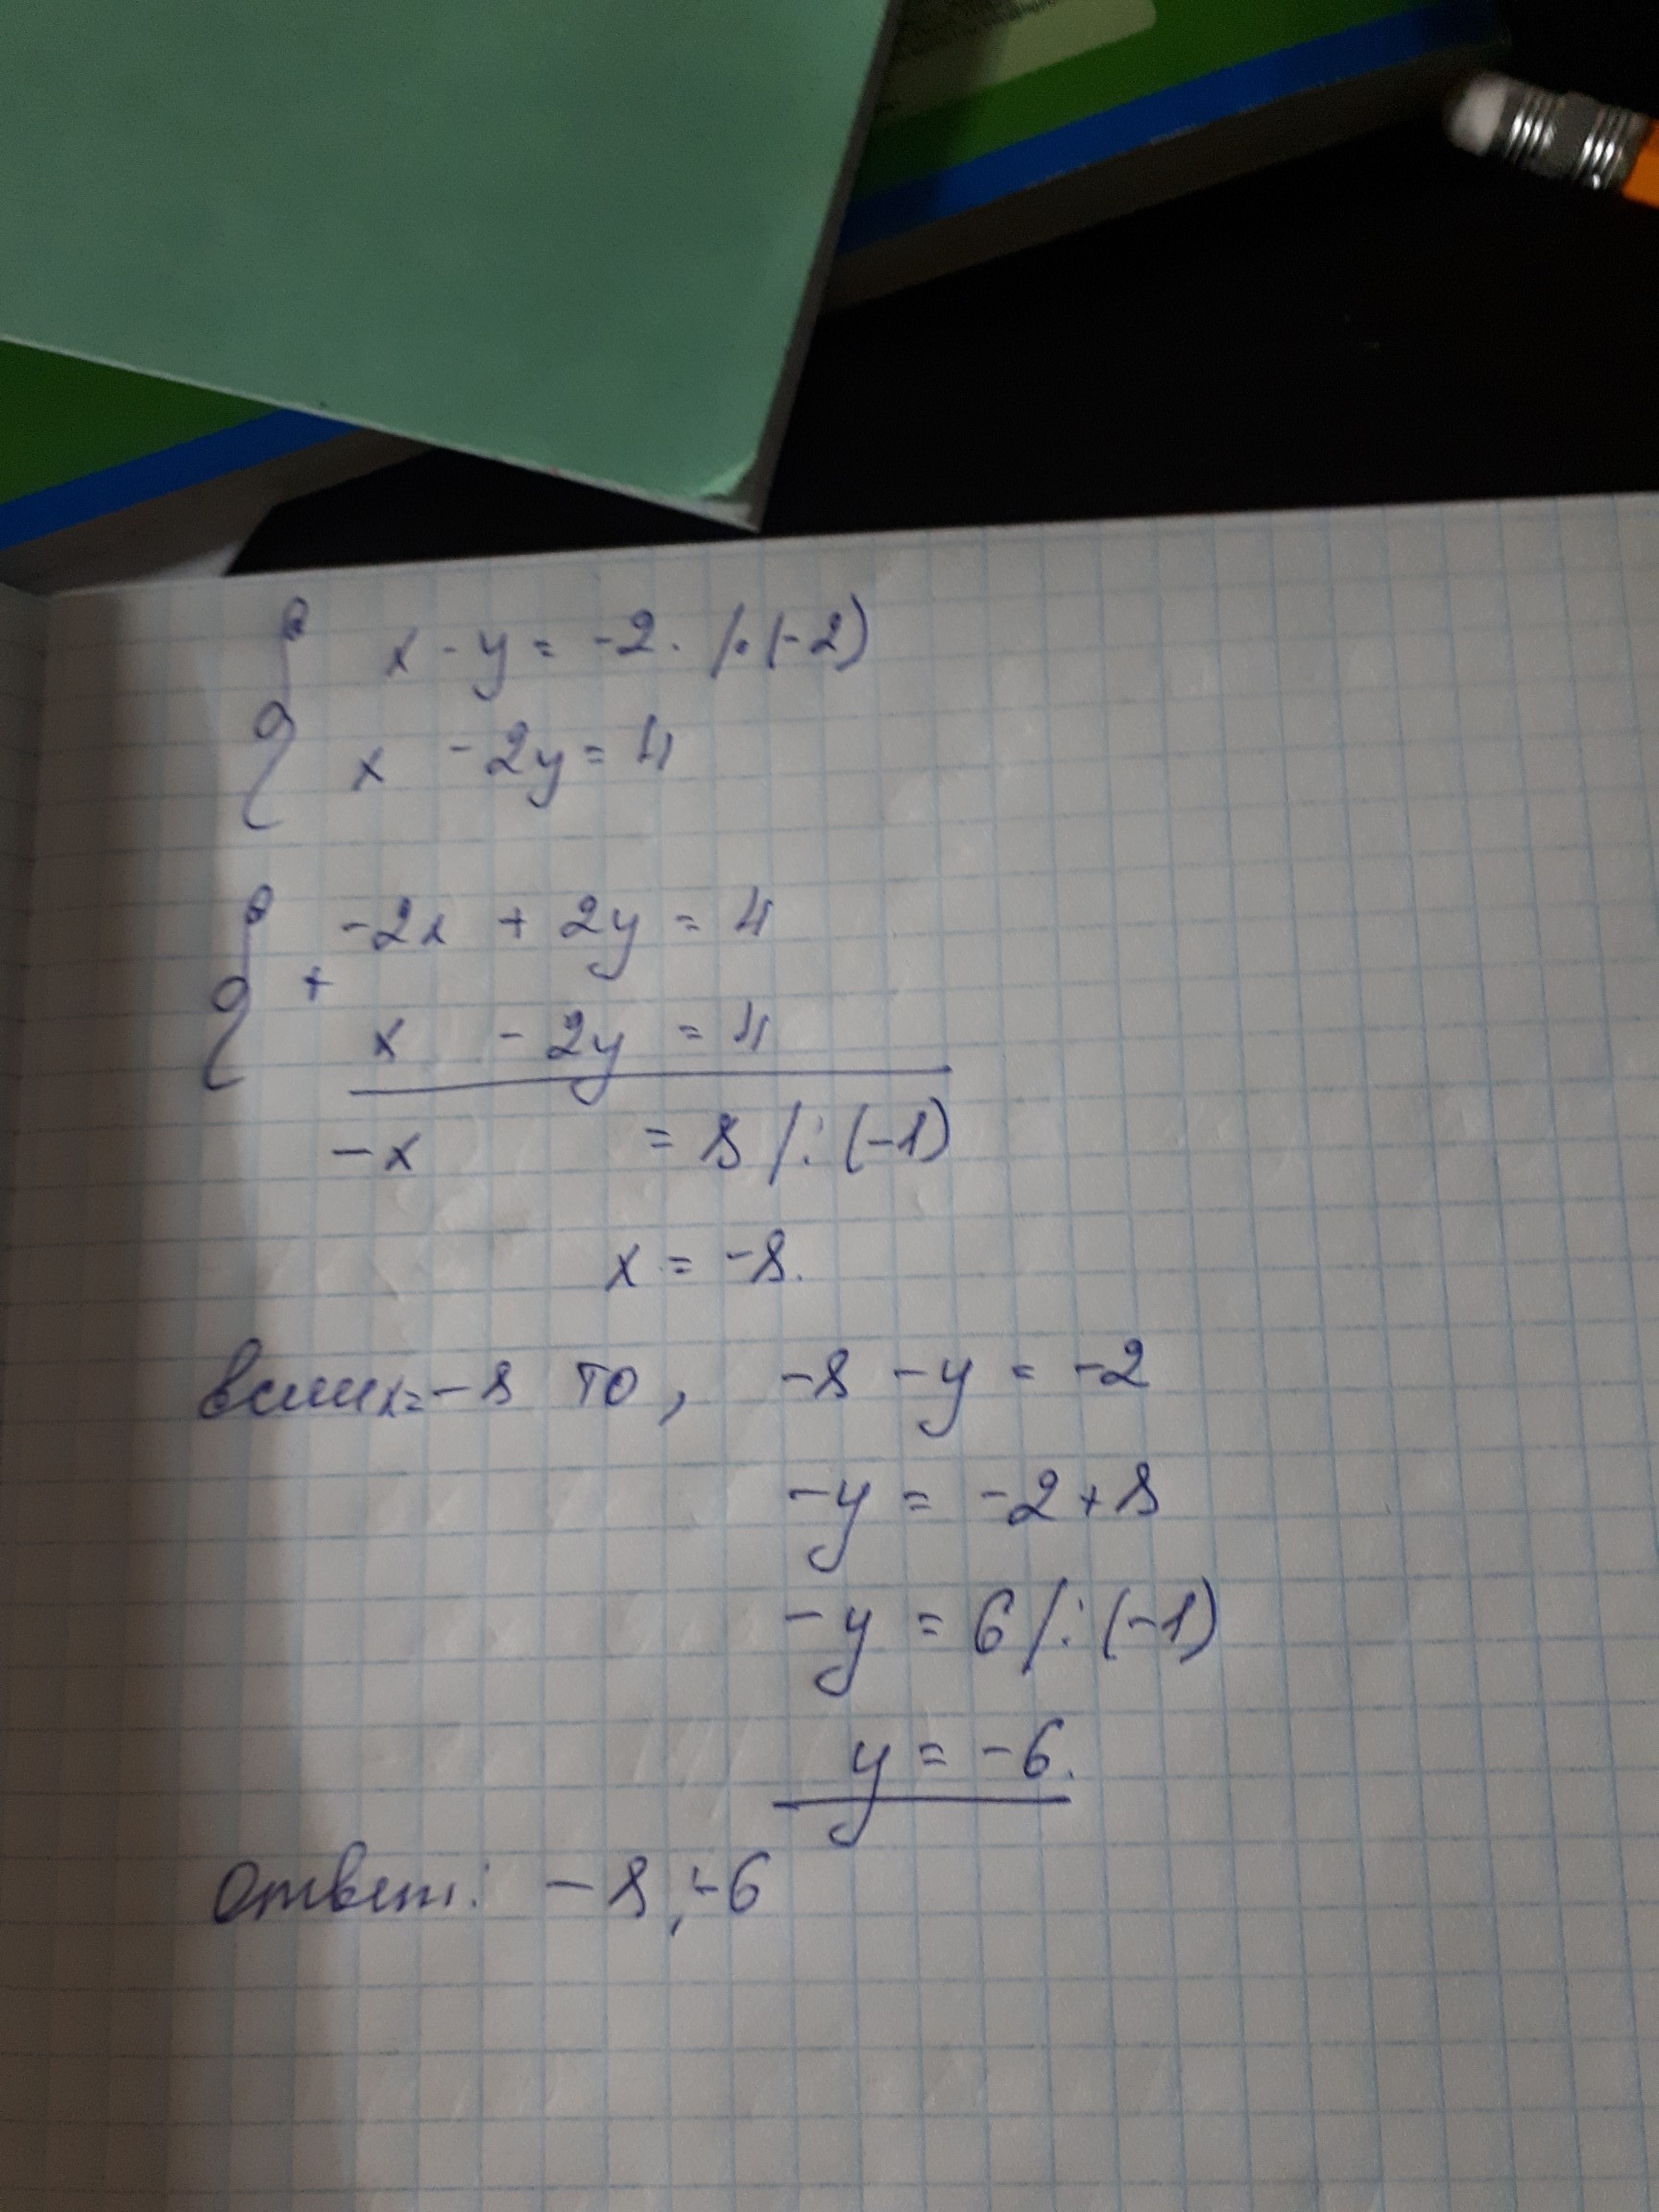 x - y = -2. /·(-2)
x - 2y = 4
-2x + 2y = 4
+
x - 2y = 4
-x = 8 /:(-1)
x = -8.
Если x=-8 то, -8 - y = -2
-y = -2+8
-y = 6 /:(-1)
y = -6.
Ответ: -8;-6